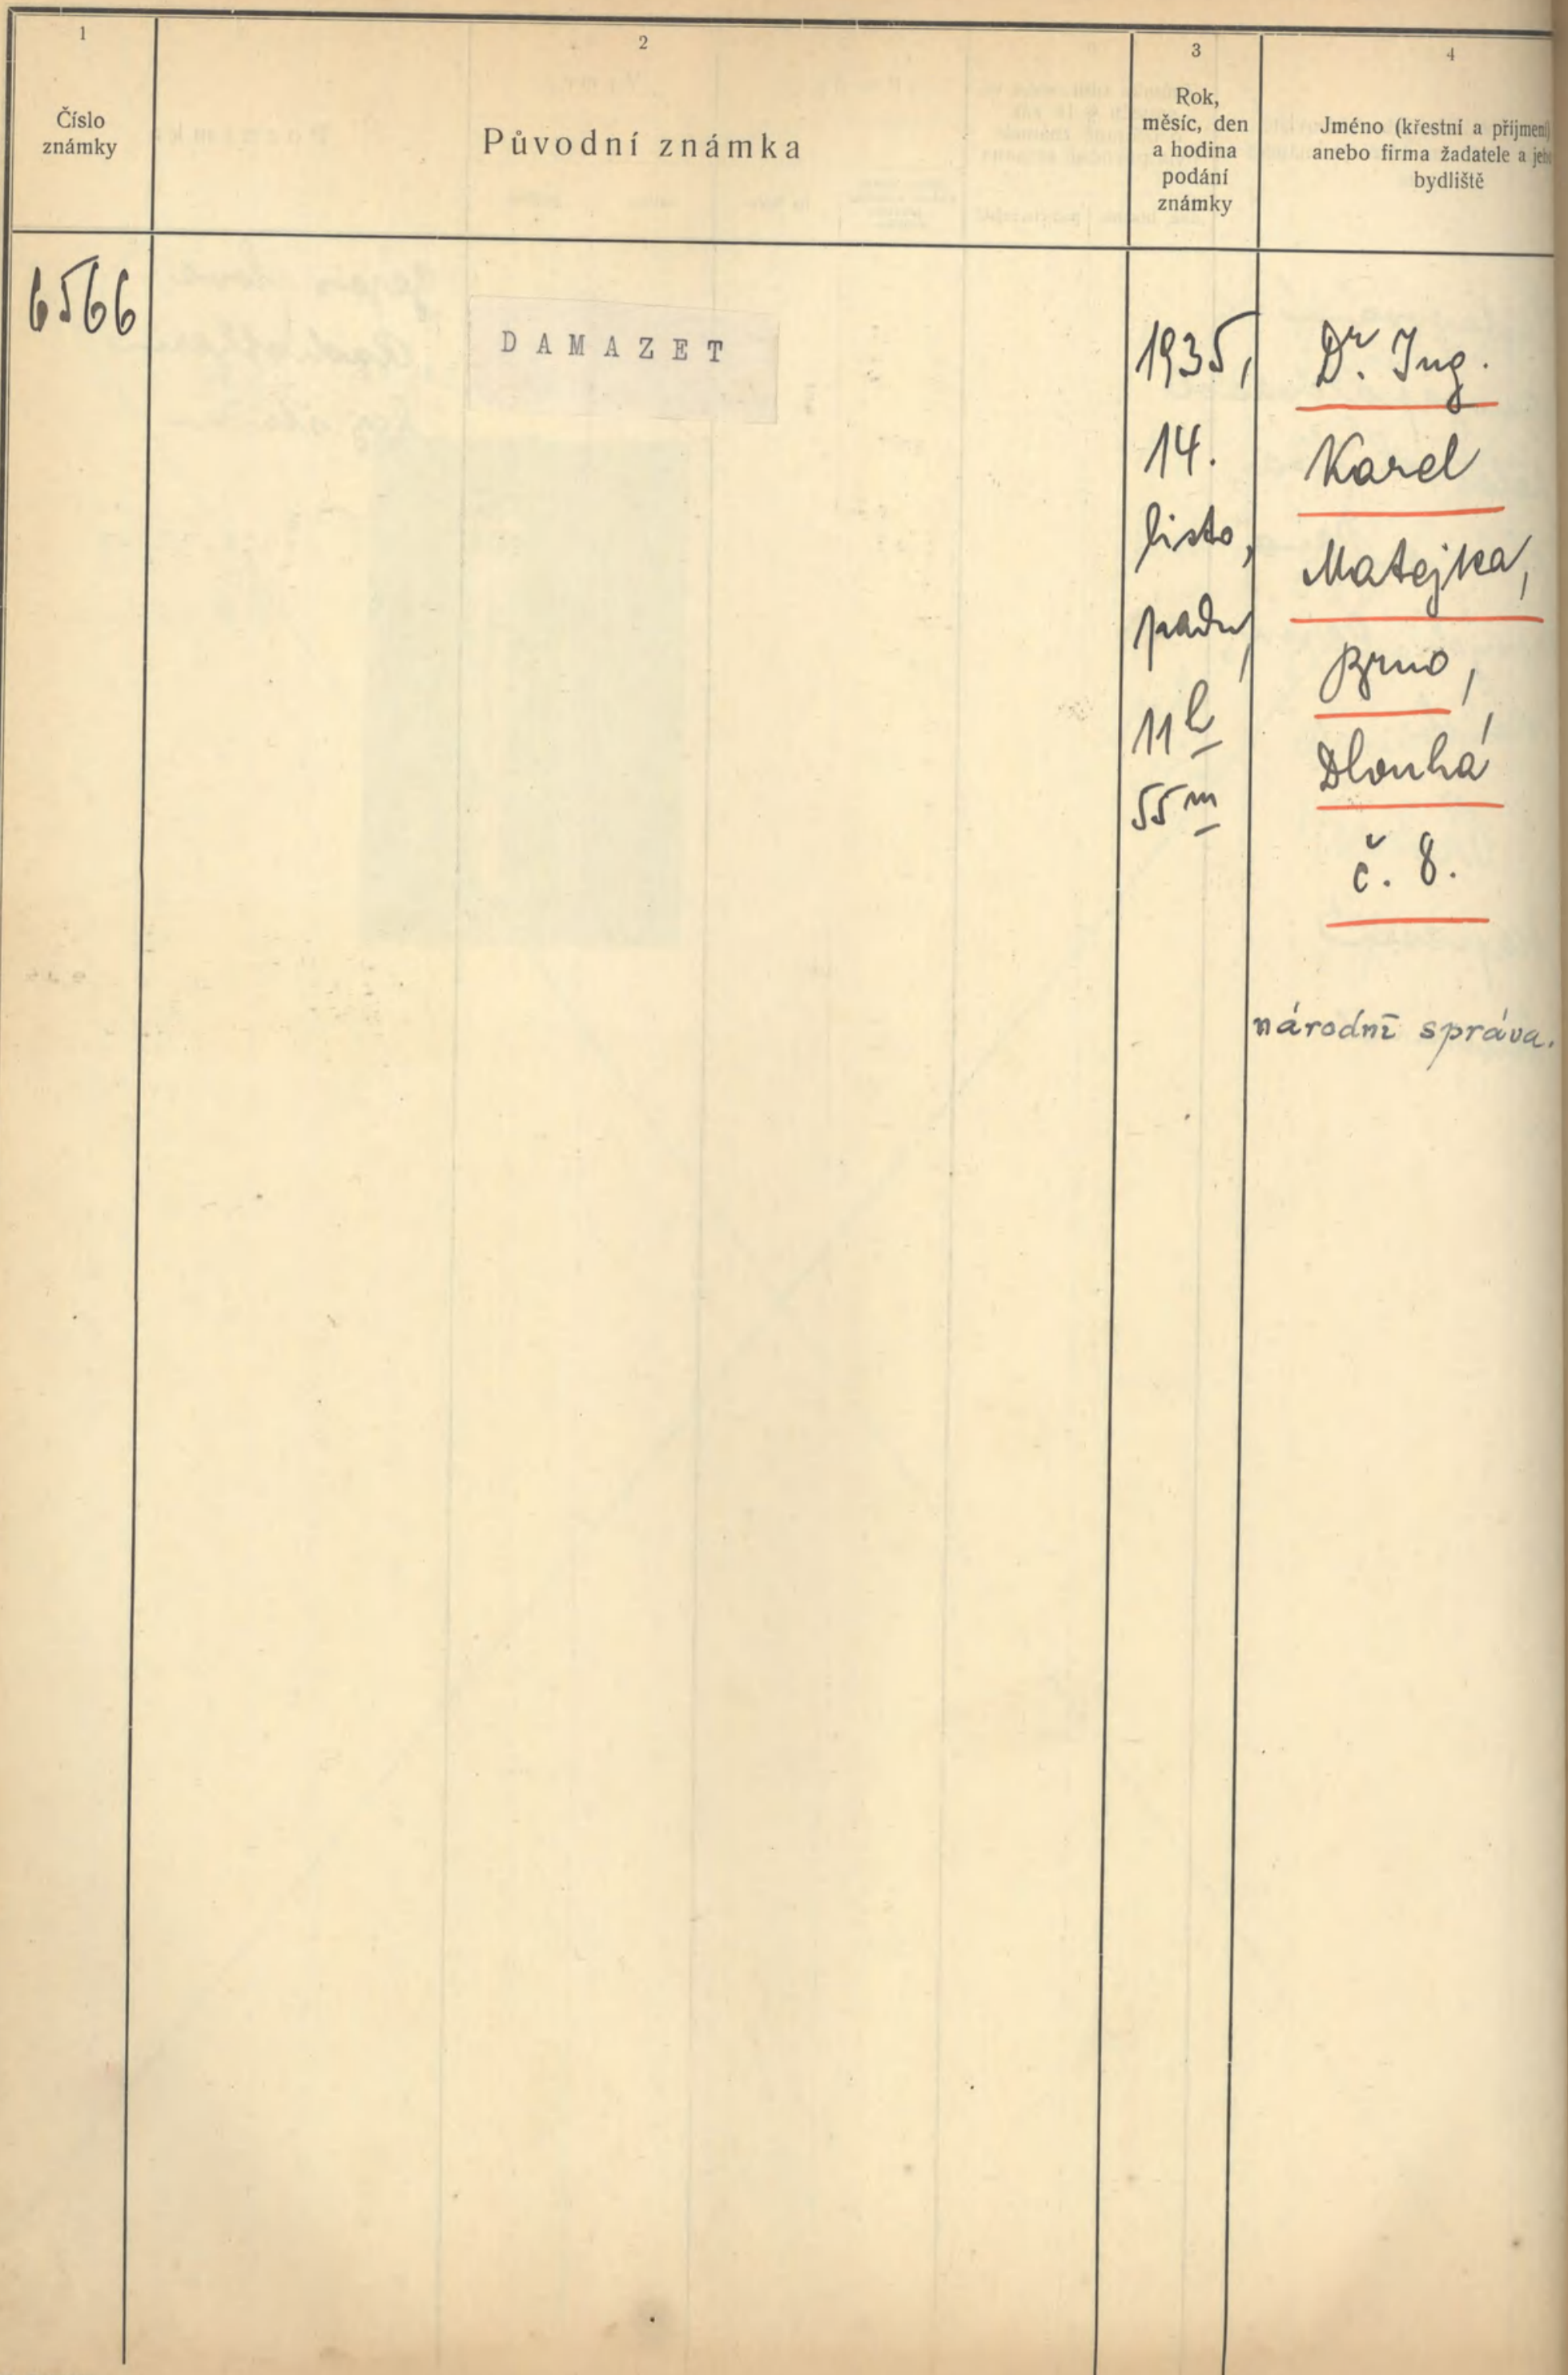 1
Číslo
známky
2
Původní známka
3
Rok,
měsíc, den
a hodina
podání
známky
4
Jméno (křestní a příjmení)
anebo firma žadatele a jeho
bydliště
6566
DAMAZET
1935,
14.
listo,
padu,
11 h
55 m
Dr. Ing.
Karel
Matejka,
Brno,
Dlouhá
č. 8.
národní správa.